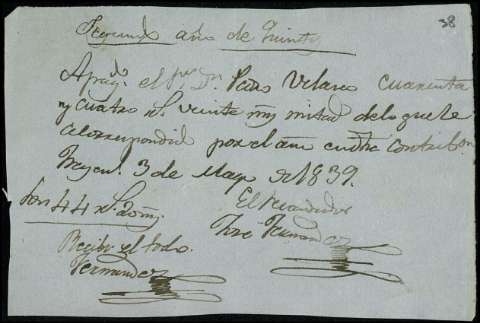 38
Segundo año de Quinta
A pagdo. el Sr. Dn. Pedro Velasco cuarenta
y cuatro rs. veinte ms. mitad de lo que le
a correspondido por el año contribon.
3 de Mayo de 1839.
Son 44 rs. 20 ms.
El Recaudador
Jose Fernandez
Recibi el todo.
Fernandez